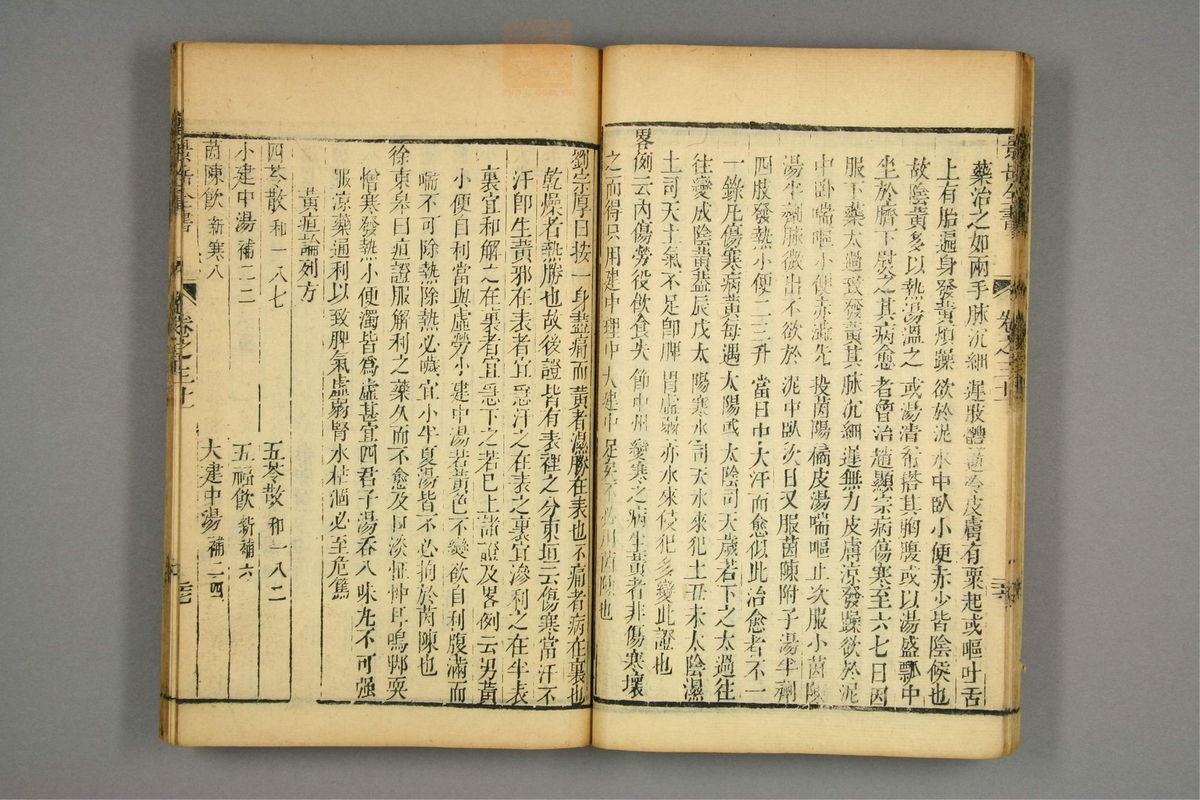 景岳全書 卷之三十一
藥治之如兩手脉沉細遲肢體逆冷皮膚有粟起或嘔吐舌
上有胎遍身發黃煩躁欲於泥水中臥小便赤少皆陰候也
故陰黃多以熱湯溫之或湯漬布搭其胸腹或以湯盛瓢中
坐於臍下熨之其病愈者曾治趙顯宗病傷寒至六七日因
服下藥太過致發黃其脉沉細遲無力皮膚涼發躁欲於泥
中臥喘嘔小便赤澁先投茵陳橘皮湯喘嘔止次服小茵陳
湯半劑脉微出不欲於泥中臥次日又服茵陳附子湯半劑
四肢發熱小便二三升當日中大汗而愈似此治愈者不一
一錄凡傷寒病黃每遇太陽或太陰司天歲若下之太過往
往變成陰黃葢辰戌太陽寒水司天水來犯土丑未太陰濕
土司天土氣不足卽脾胃虛弱亦水來侵犯多變此證也
畧例云內傷勞役飲食失節中州變寒之病生黃者非傷寒壞
之而得只用建中理中大建中足矣不必用茵陳也
劉宗厚曰按一身盡痛而黃者濕勝在表也不痛者病在裏也
乾燥者熱勝也故後證皆有表裡之分東垣云傷寒當汗不
汗卽生黃邪在表者宜急汗之在表之裏宜滲利之在半表
裏宜和解之在裏者宜急下之若巳上諸證及畧例云男黃
小便自利當與虛勞小建中湯若黃色不變欲自利腹滿而
喘不可除熱除熱必噦宜小半夏湯皆不必拘於茵陳也
徐東皋曰疸證服解利之藥久而不愈及口淡怔忡耳鳴脚耎
憎寒發熱小便濁皆爲虛甚宜四君子湯吞八味丸不可强
服凉藥通利以致脾氣虛弱腎水枯涸必至危篤
黃疸論列方
四苓散 和一八七 五苓散 和一八二
小建中湯 補二二 五福飲 新補六
茵陳飲 新寒八 大建中湯 補二四
景岳全書 卷之三十一